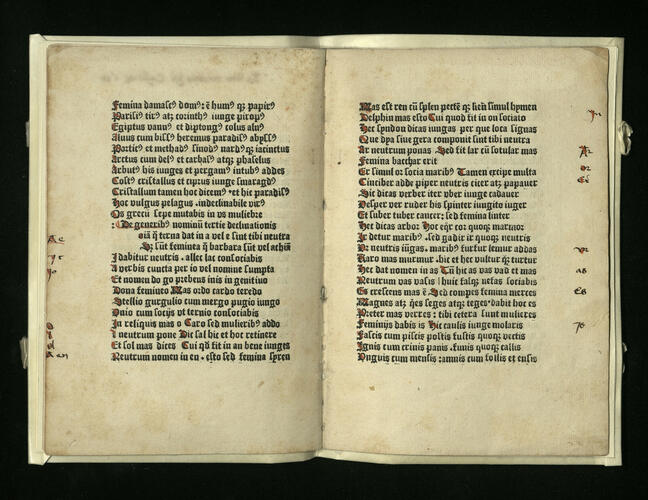 Femina damascꝰ domꝰ ē humꝰ qꝫ papirꝰ
Parisiꝰ tirꝰ atꝫ corinthꝰ iunge piropꝰ
Egiptus vanuꝰ et diptongꝰ colus alnꝰ
Aluus cum bissꝰ heremus paradisꝰ abyssꝰ
Partiꝰ et methodꝰ sinodꝰ nardꝰ qꝫ iacinctus
Arctus cum delꝰ et carbasꝰ atqꝫ phaselus
Arbutꝰ his iunges et pergamꝰ intubꝰ addes
Costꝰ cristallus et ciprus iunge smaragdꝰ
Cristallum tamen hoc dicem⁹ et hic paradisꝰ
Hoc vulgus pelagus indeclinabile virꝰ
Os grecū sepe mutabis in vs muliebre
De generibꝰ nominū tertie declinationis
oīa q̄ terna dat in a vel e sint tibi neutra
Sꝫ sūt feminea q̄ barbara sūt vel achiū
I dabitur neutris allec lac consociabis
A verbis cuncta per io vel nomine sumpta
Et nomen do go prebens inis in genitiuo
Dona femineo Mas ordo cardo teredo
Stellio gurgulio cum mergo pugio iungo
Unio cum socijs vt ternio consociabis
In reliquis mas o Caro sed mulieribꝰ addo
I neutrum pone Dic sal hic et hoc retinere
Et sol mas dices Cui qd fit in an bene iunges
Neutrum nomen in en esto sed femina syren
Ac
yt
yo
o
l
d
A en
Mas est ren cū splen pectē qꝫ lien simul hymen
Delphin mas esto Cui quod fit in on sociato
Hec syndon dicas iungas per que loca signas
Que dya siue gera componit sint tibi neutra
Ar neutrum ponas Sed fit lar cū sotular mas
Femina bacchar erit
Er simul or socia maribꝰ Tamen excipe multa
Cinciber adde piper neutris cicer atꝫ papauer
Sic dicas verber iter vber iunge cadauer
Vesper ver ruder his spinter iungito iuger
Et suber tuber cancer: sed femina linter
Hec dicas arbor Hoc eqͦr cor quoqꝫ marmor
Ir detur maribꝰ sed gadir ir quoqꝫ neutris
Vr neutris iūgas maribꝰ furfur lemur addas
Karo mas murmur hic et hec vultur qꝫ turtur
Hec dat nomen in as Tn̄ hic as vas vad et mas
Neutrum vas vasis huic fasqꝫ nefas sociabis
Es crescens mas ē Sed compes femina merces
Magnes atqꝫ q̄es seges atqꝫ teges dabit hoc es
Preter mas verres tibi cetera sunt mulieres
Femineis dabis is Hic caulis iunge molaris
Fascis cum piscis postis fustis quoqꝫ vectis
Ignis cum crinis panis funis quoqꝫ callis
Vnguis cum mensis amnis cum follis et ensis
yn
Ar
or
Ei
vr
as
Es